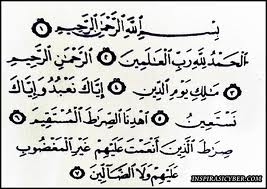 بِسْمِ اللَّهِ الرَّحْمَٰنِ الرَّحِيمِ ١
الْحَمْدُ لِلَّهِ رَبِّ الْعَالَمِينَ ٢ الرَّحْمَٰنِ الرَّحِيمِ
٣ مَالِكِ يَوْمِ الدِّينِ ٤ إِيَّاكَ نَعْبُدُ وَإِيَّاكَ
نَسْتَعِينُ ٥ اهْدِنَا الصِّرَاطَ الْمُسْتَقِيمَ ٦
صِرَاطَ الَّذِينَ أَنْعَمْتَ عَلَيْهِمْ غَيْرِ الْمَغْضُوبِ
عَلَيْهِمْ وَلَا الضَّالِّينَ ٧
INSPIRASICYBER.COM